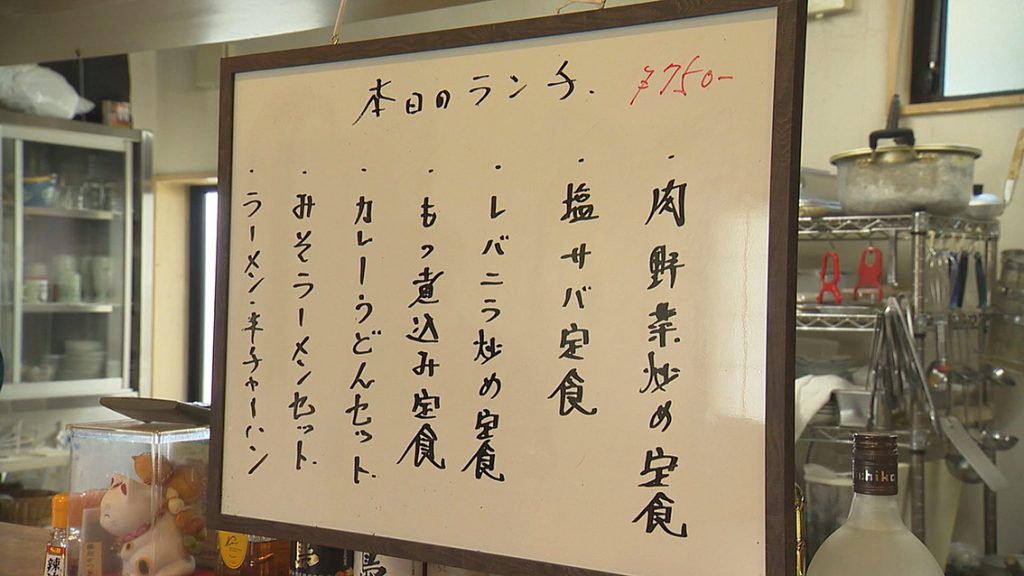 本日のランチ. ¥750-
・肉野菜炒め定食
・塩サバ定食
・レバニラ炒め定食
・もつ煮込み定食
・カレーうどんセット
・みそラーメンセット
・ラーメン・半チャーハン
chiko